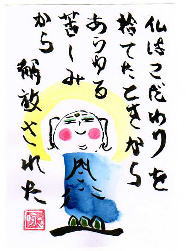 仏はこだわりを
捨てたときから
あらゆる
苦しみ
から解放された